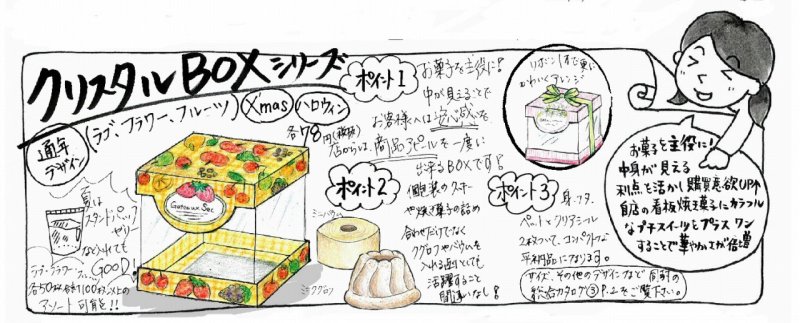 クリスタルBOXシリーズ
通年
デザイン
(ラブ、フラワー、フルーツ)
X'mas
ハロウィン
各78円(税抜)
夏は
スタンドパック
ゼリー
など入れても
GOOD!
ラブ・フラワー・フルーツ
アソート可能!!
Gateaux Sec
ポイント1
お菓子を主役に!
中が見えることで
お客様へは安心感を
店からは、商品アピールを一度に
出来るBOXです!
ポイント2
個包装のクッキー
や焼き菓子の詰め
合わせだけでなく
クグロフやバウムを
入れる函としても
活躍すること
間違いなし!
ミニバウム
ミニクグロフ
リボン1本で更に
かわいくアレンジ
ポイント3
身・フタ、
ペットとクリアシール
2枚ついて、コンパクトな
平納品になります。
サイズ、その他のデザインなど同封の
総合カタログ③P.2をご覧下さい。
お菓子を主役に!
中身が見える
利点を活かし購買意欲UP!
自店の看板焼き菓子にカラフル
なプチスイーツをプラスワン
することで華やかさが倍増